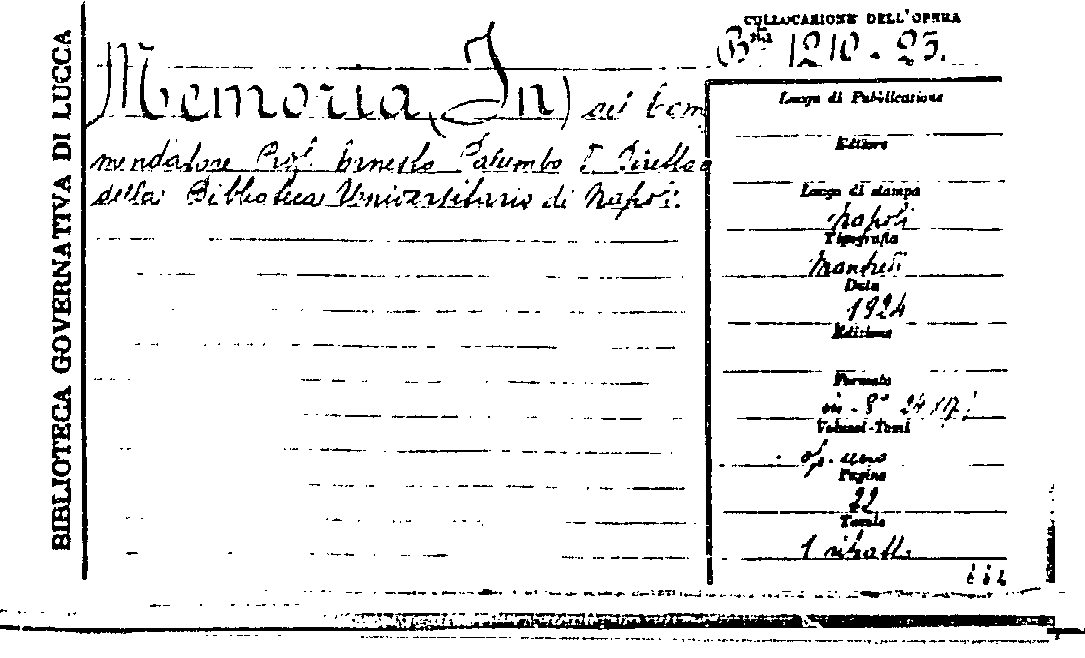 BIBLIOTECA GOVERNATIVA DI LUCCA
COLLOCAZIONE DELL'OPERA
Bta 1210.25.
Memoria (In) del Com
mendatore Prof. Ernesto Palumbo Direttore
della Biblioteca Universitaria di Napoli.
Luogo di Pubblicazione
Editore
Luogo di stampa
Napoli
Tipografia
Data
1924
Edizione
Formato
in-8° 24
Volumi-Tomi
op. uno
Pagine
22
Tavole
1 ritratt.